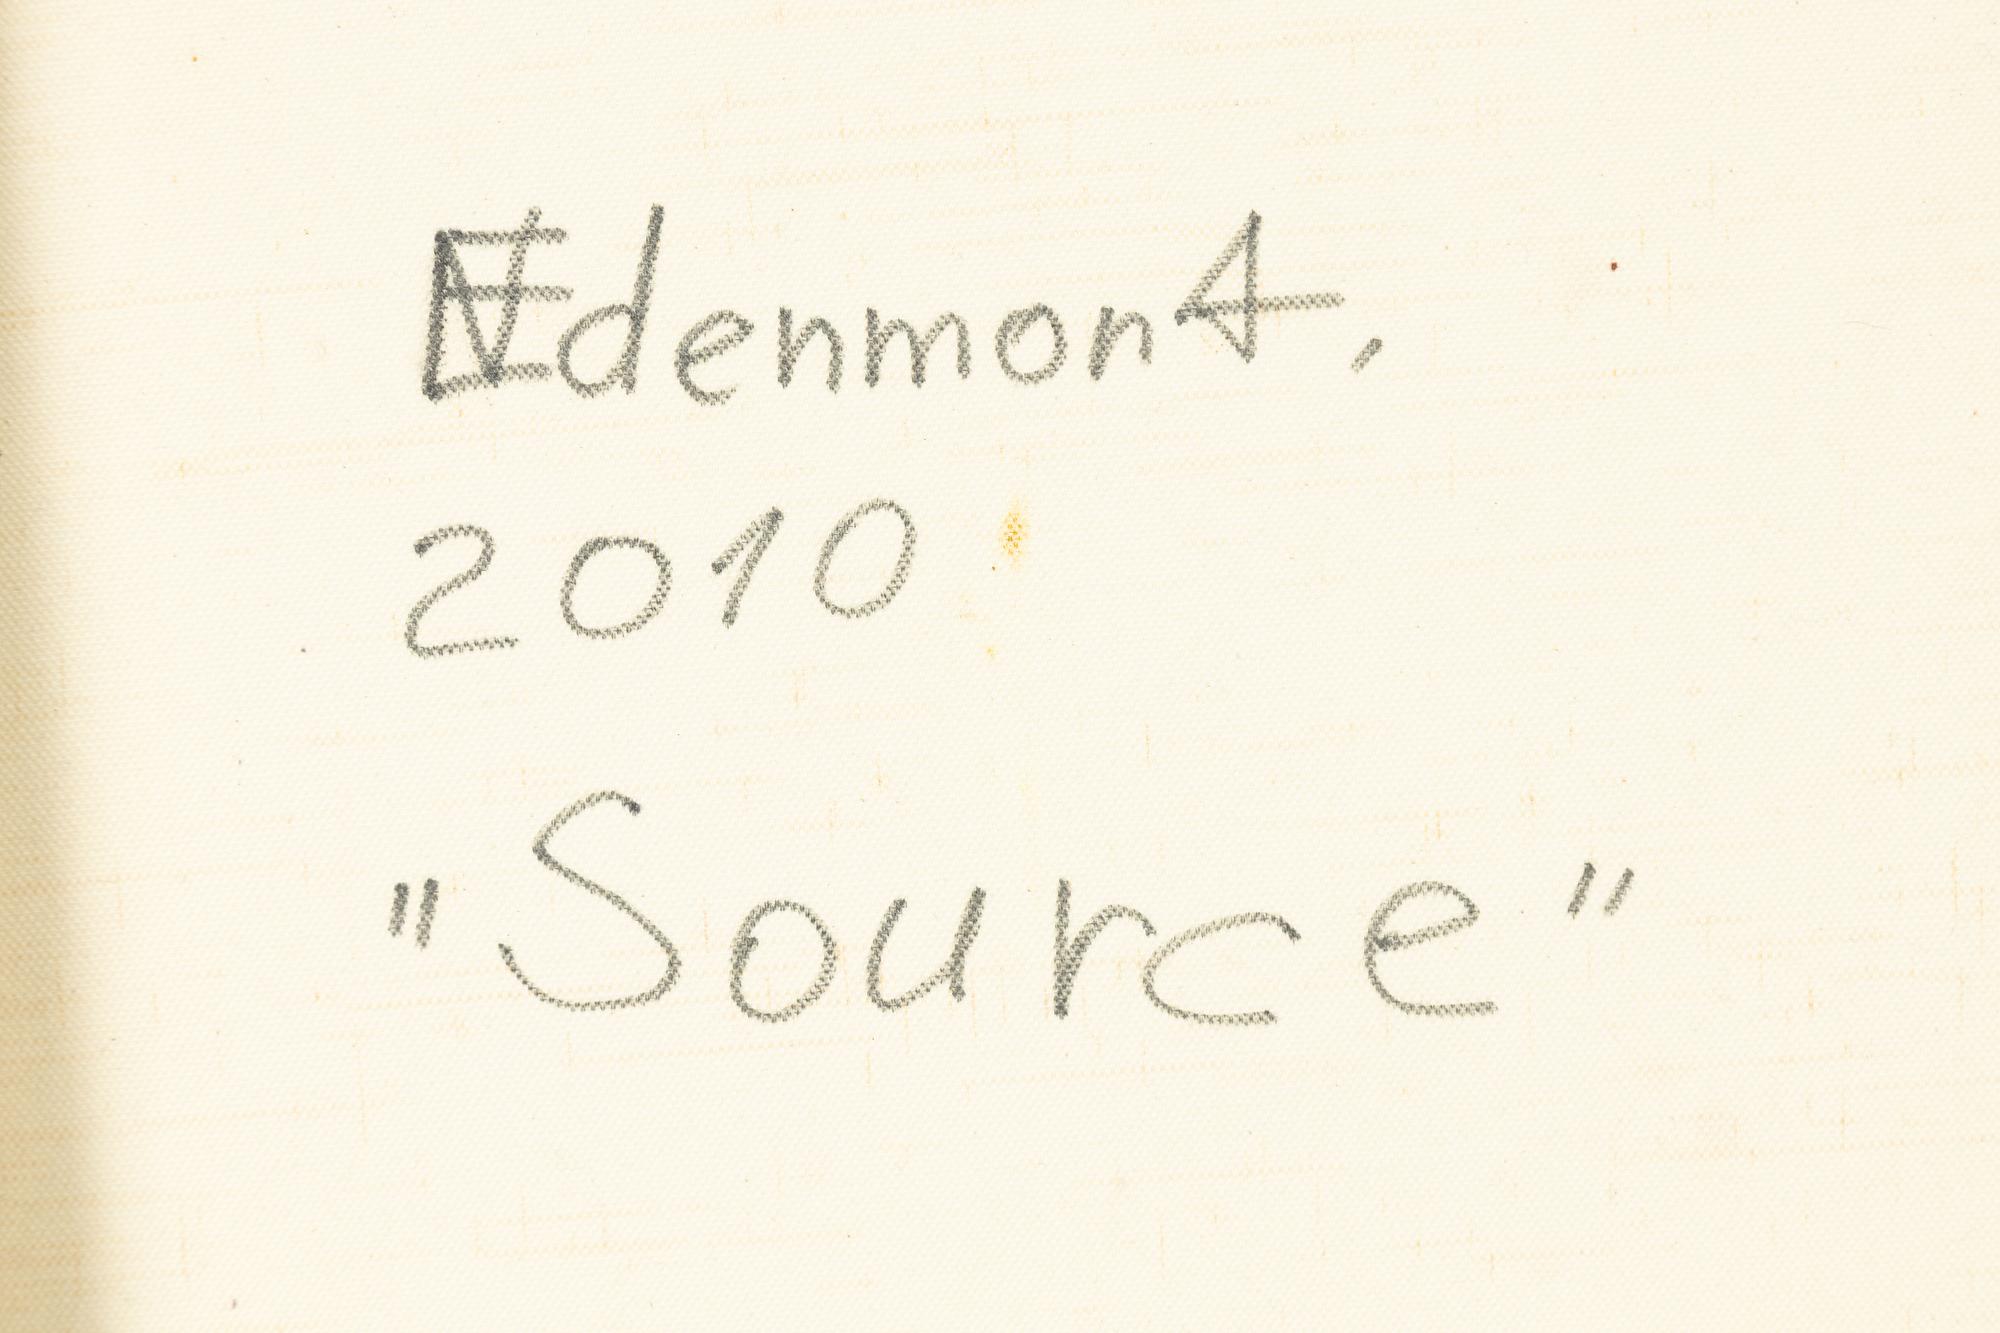 Edenmont,
2010
"Source"